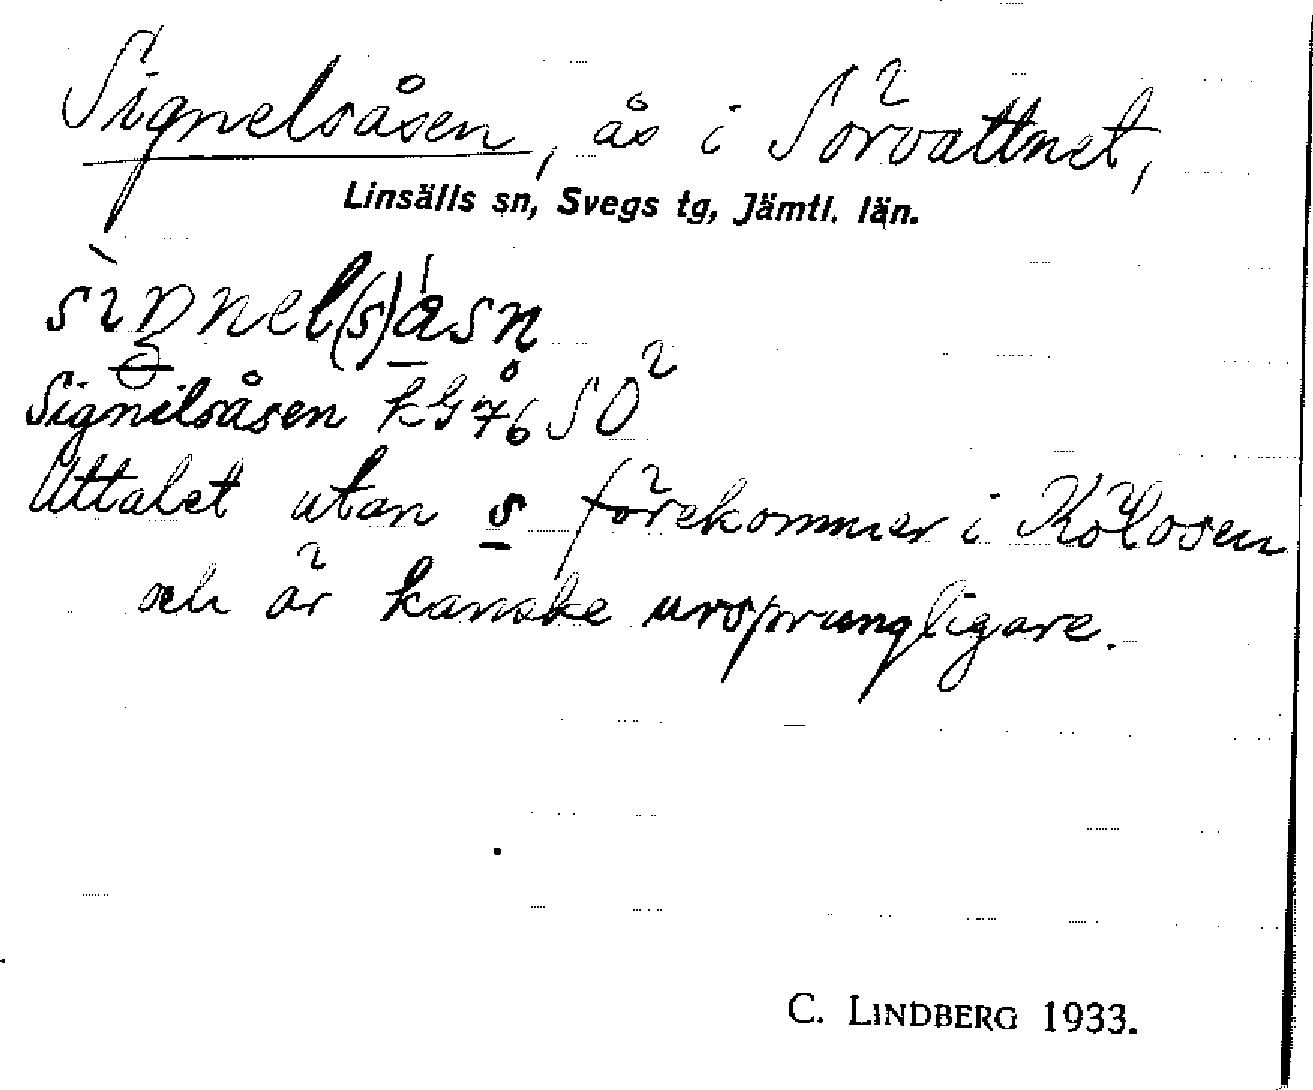 Signelsåsen, ås i Sörvattnet,
Linsälls sn, Svegs tg, Jämtl. län.
sìŋnel(s)ásn
Signilsåsen KG 76 SÖ
Uttalet utan s förekommer i Kölosen
och är kanske ursprungligare.
C. LINDBERG 1933.